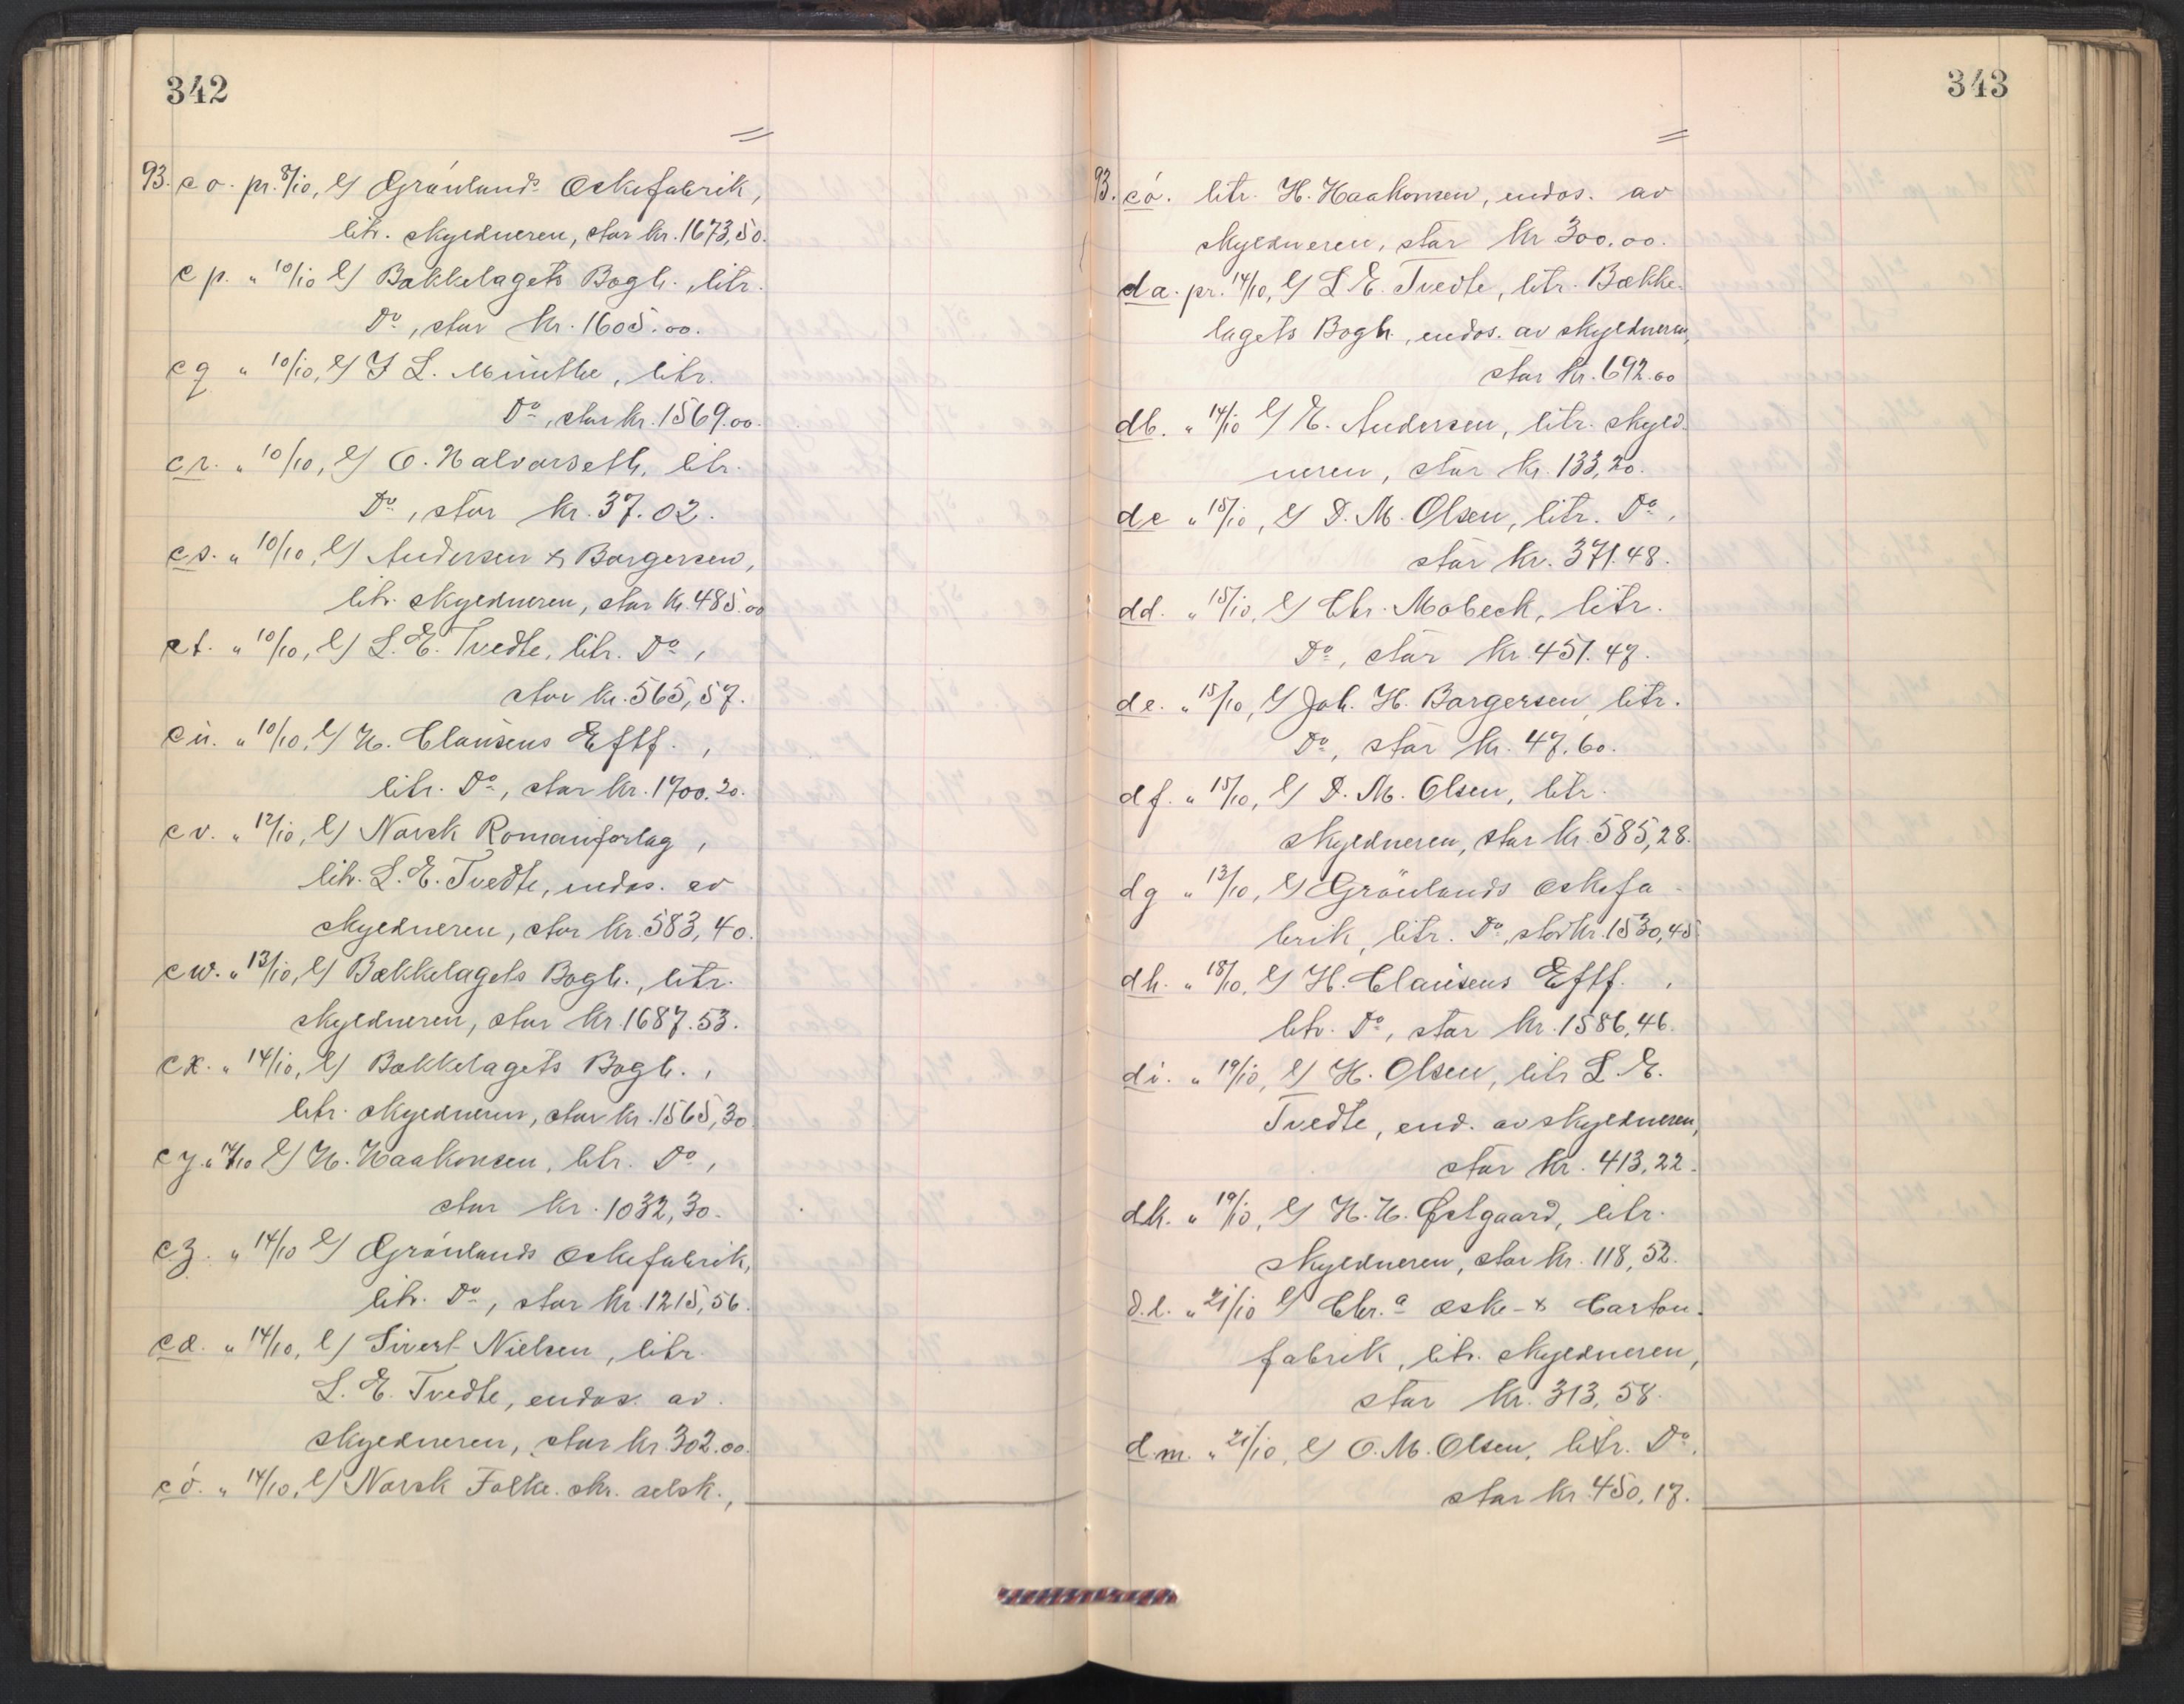 342
93. c o. pr. 8/10, e/ Grønlands Oeskefabrik,
litr. skyldneren, stor kr. 1673,50.
c p. " 10/10 e/ Bækkelagets Bogh., litr.
Do, stor kr. 1605.00.
c q " 10/10, e/ I L. Minthe, litr.
Do, stor kr. 1569.00.
c r. " 10/10, e/ O. Halvorseth, litr.
Do, stor kr. 37.02.
c s. " 10/10, e/ Andersen & Borgersen,
litr. skyldneren, stor kr. 485.00
c t. " 10/10, e/ L. E. Tvedte, litr. Do,
stor kr. 565,57.
c u. " 10/10, e/ H. Clausens Eftf.,
litr. Do, stor kr. 1700.20.
c v. " 12/10, e/ Norsk Romanforlag,
litr. L. E. Tvedte, endos. av
skyldneren, stor kr. 583,40.
c w. " 13/10, e/ Bækkelagets Bogh., litr.
skyldneren, stor kr. 1687.53.
c x. " 14/10, e/ Bækkelagets Bogh.,
litr. skyldneren, stor kr. 1565,30
c y. " 14/10 e/ H. Haakonsen, litr. Do,
stor kr. 1032,30.
c z. " 14/10 e/ Grønlands oeskefabrik,
litr. Do, stor kr. 1215,56.
c æ. " 14/10, e/ Sivert Nielsen, litr.
L. E. Tvedte, endos. av.
skyldneren, stor kr. 302.00.
c ó. " 14/10, e/ Norsk Folke. skr. selsk.,
343
93. c ó. litr. H. Haakonsen, endos. av
skyldneren, stor kr 300.00.
d a. pr. 14/10, e/ L E. Tvedte, litr. Bække-
lagets Bogh., endos. av skyldneren,
stor kr. 692.00
d b. " 14/10 e/ E. Andersen, litr. skyld-
neren, stor kr. 133,20.
d c " 15/10, e/ D. M. Olsen, litr. Do,
stor kr. 371.48.
d d. " 15/10, e/ Chr. Mobeck, litr.
Do, stor kr. 451.47.
d e. " 15/10, e/ Joh. H. Borgersen, litr.
Do, stor kr. 47.60.
d f. " 15/10, e/ D. M. Olsen, litr.
skyldneren, stor kr. 585,28.
d g " 13/10, e/ Grønlands oeskefa-
brik, litr. Do, stor kr. 1530,45
d h. " 18/10, e/ H. Clausens Eftf.,
litr. Do, stor kr. 1586,46.
d i. " 19/10, e/ H. Olsen, litr L. E.
Tvedte, end. av skyldneren,
stor kr. 413,22.
d k. " 19/10, e/ H. H. Østgaard, litr.
skyldneren, stor kr. 118,52.
d. l. " 21/10 e/ Chr.a æske- & Carton-
fabrik, litr. skyldneren,
stor kr. 313,58.
d. m. " 21/10, e/ O. M. Olsen, litr. Do.
stor kr. 450,17.